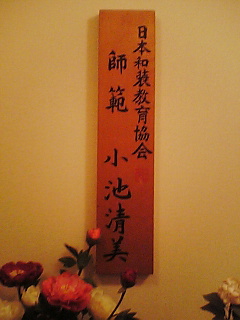 日本和装教育協会
師範 小池清美